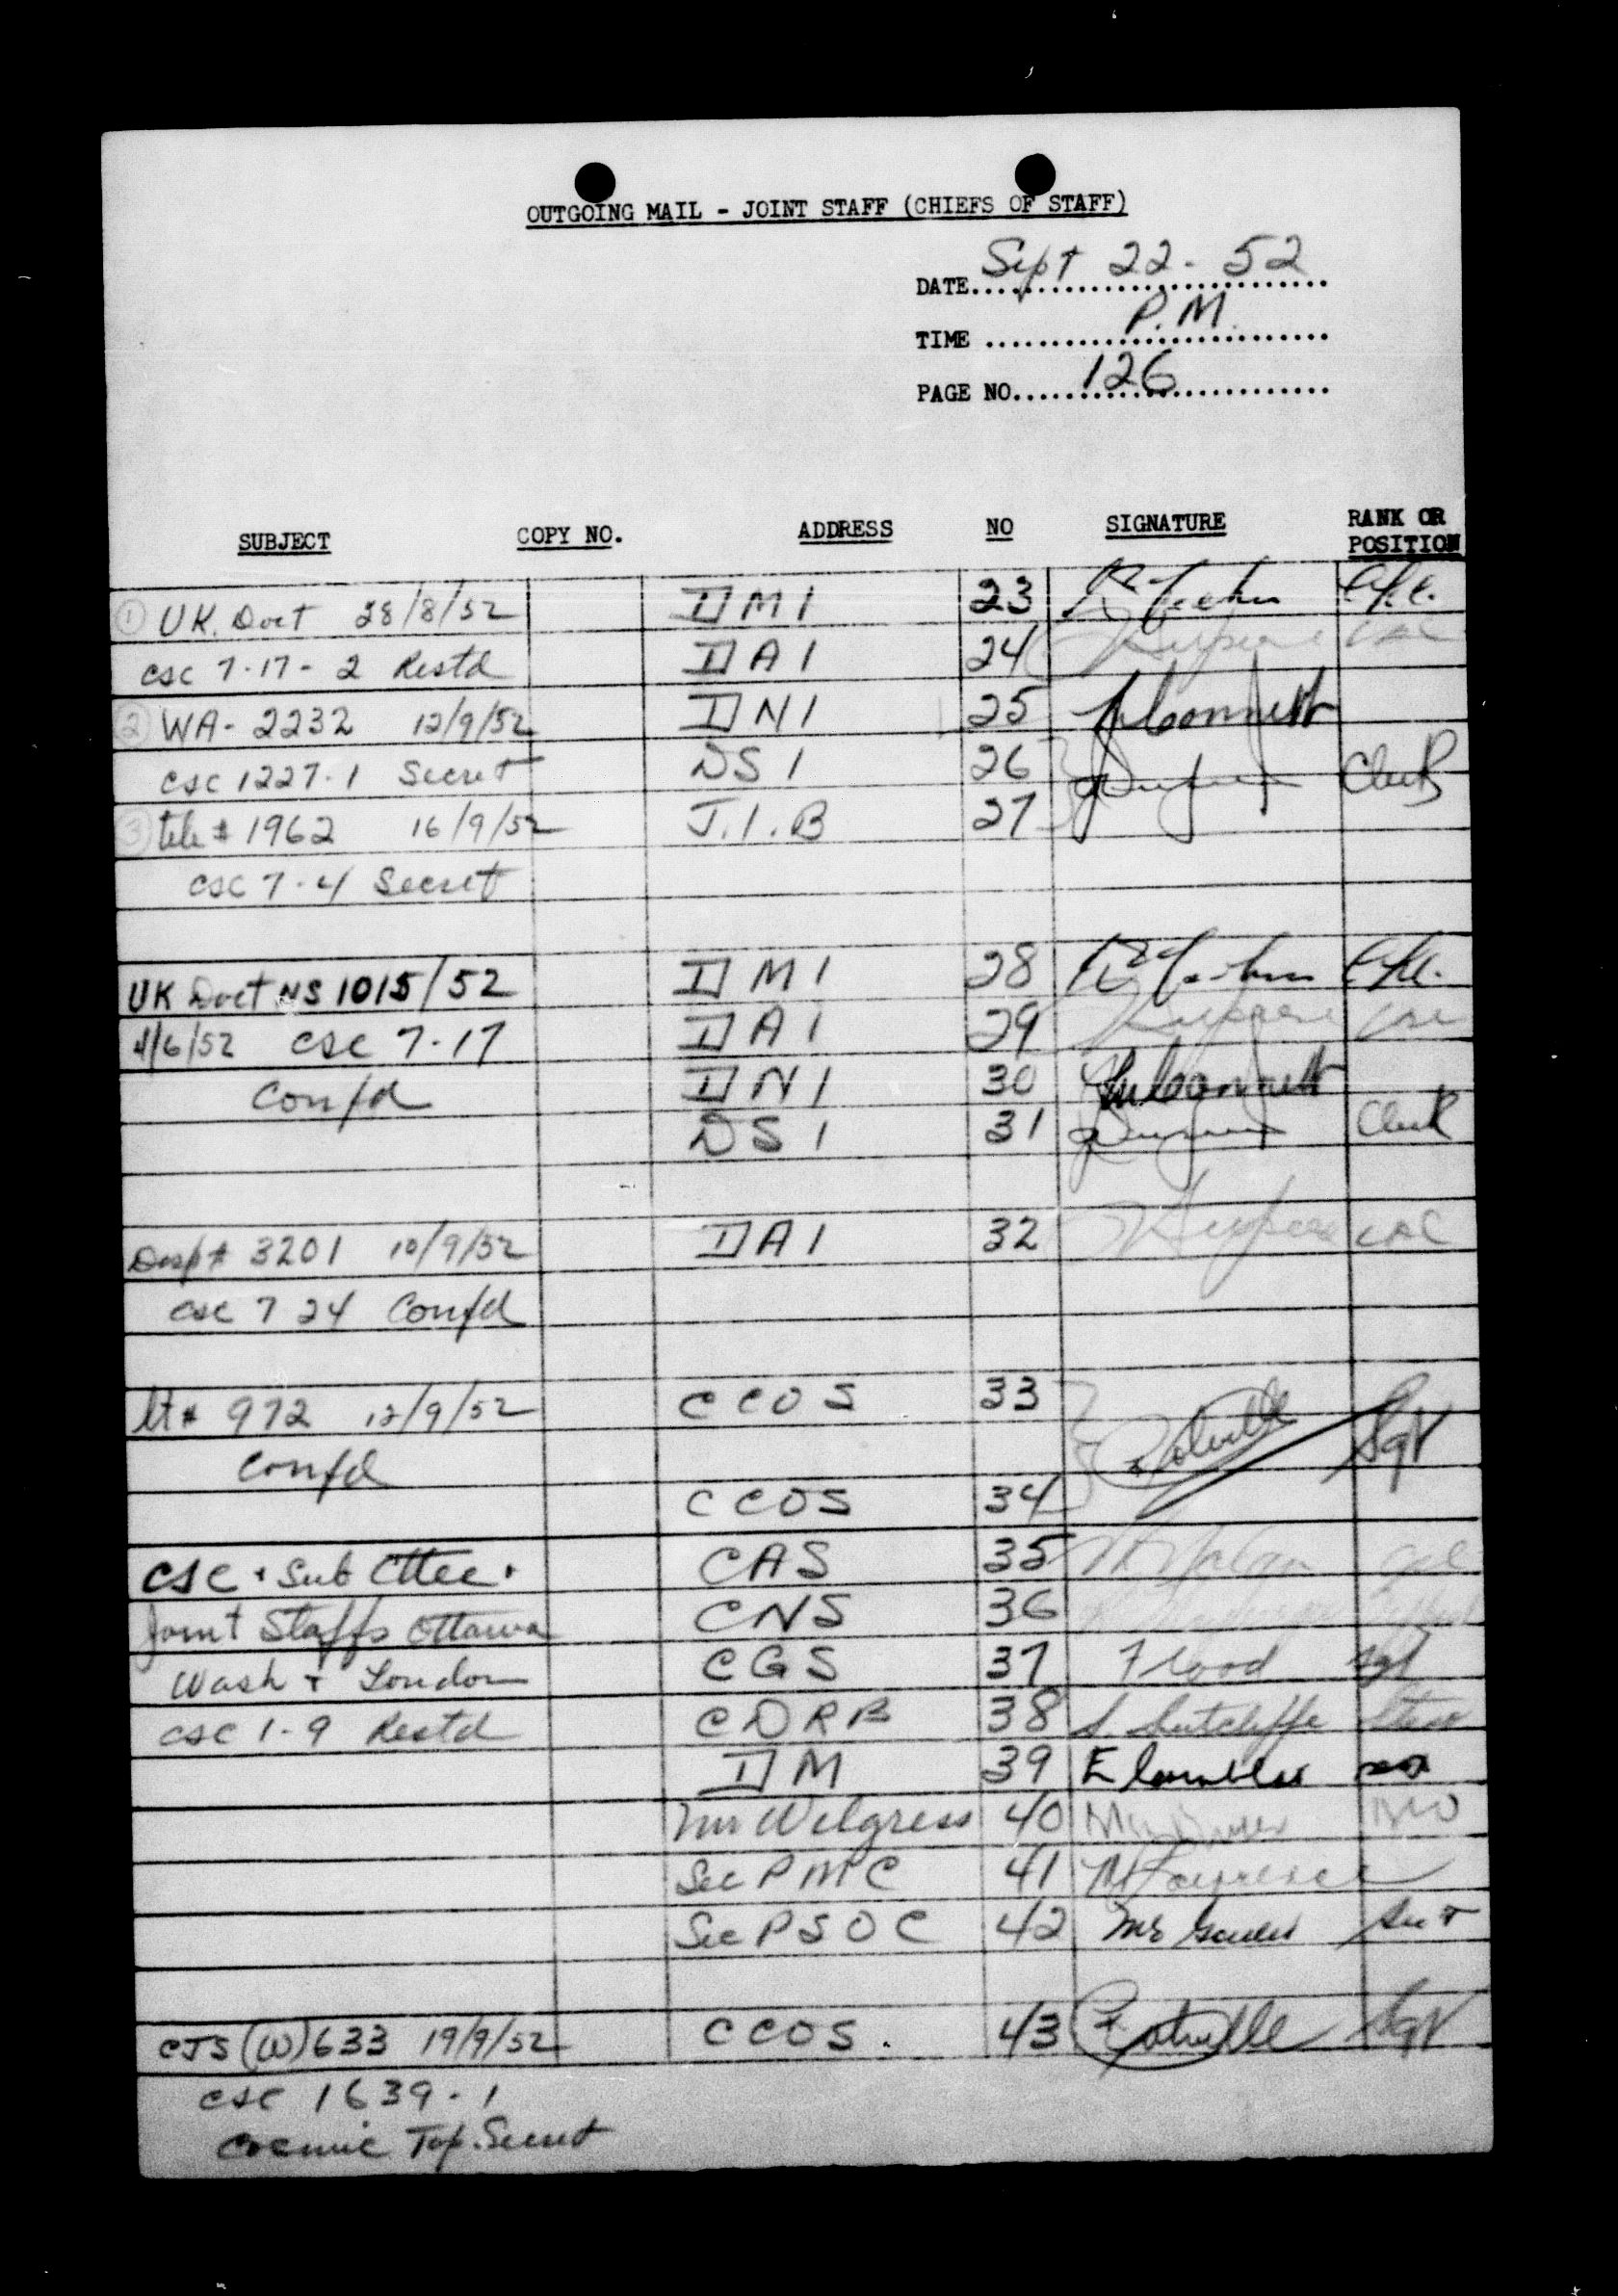 OUTGOING MAIL - JOINT STAFF (CHIEFS OF STAFF)
DATE Sept 22 - 52
TIME P.M.
PAGE NO. 126
SUBJECT COPY NO. ADDRESS NO SIGNATURE RANK OR POSITION
① UK. Doct 28/8/52 DMI 23
CSC 7-17-2 Restd DAI 24
② WA-2232 12/9/52 DNI 25
CSC 1227-1 Secret DSI 26 Clerk
③ tele # 1962 16/9/52 J.I.B 27
CSC 7-4 Secret
UK Doct NS 1015/52 DMI 28
4/6/52 CSC 7-17 DAI 29
Confd DNI 30
DSI 31 Clerk
Desp # 3201 10/9/52 DAI 32 LAC
CSC 7 24 Confd
lt # 972 12/9/52 CCOS 33
Confd Sgt
CCOS 34
CSC + Sub Cttee + CAS 35
Joint Staffs Ottawa CNS 36
Wash + London CGS 37 Flood Sgt
CSC 1-9 Restd CDRB 38 S. Sutcliffe
DM 39 E
Mr Wilgress 40
Sec PMC 41
Sec PSOC 42
CJS (W) 633 19/9/52 CCOS. 43 Sgt
CSC 1639-1
Cosmic Top Secret